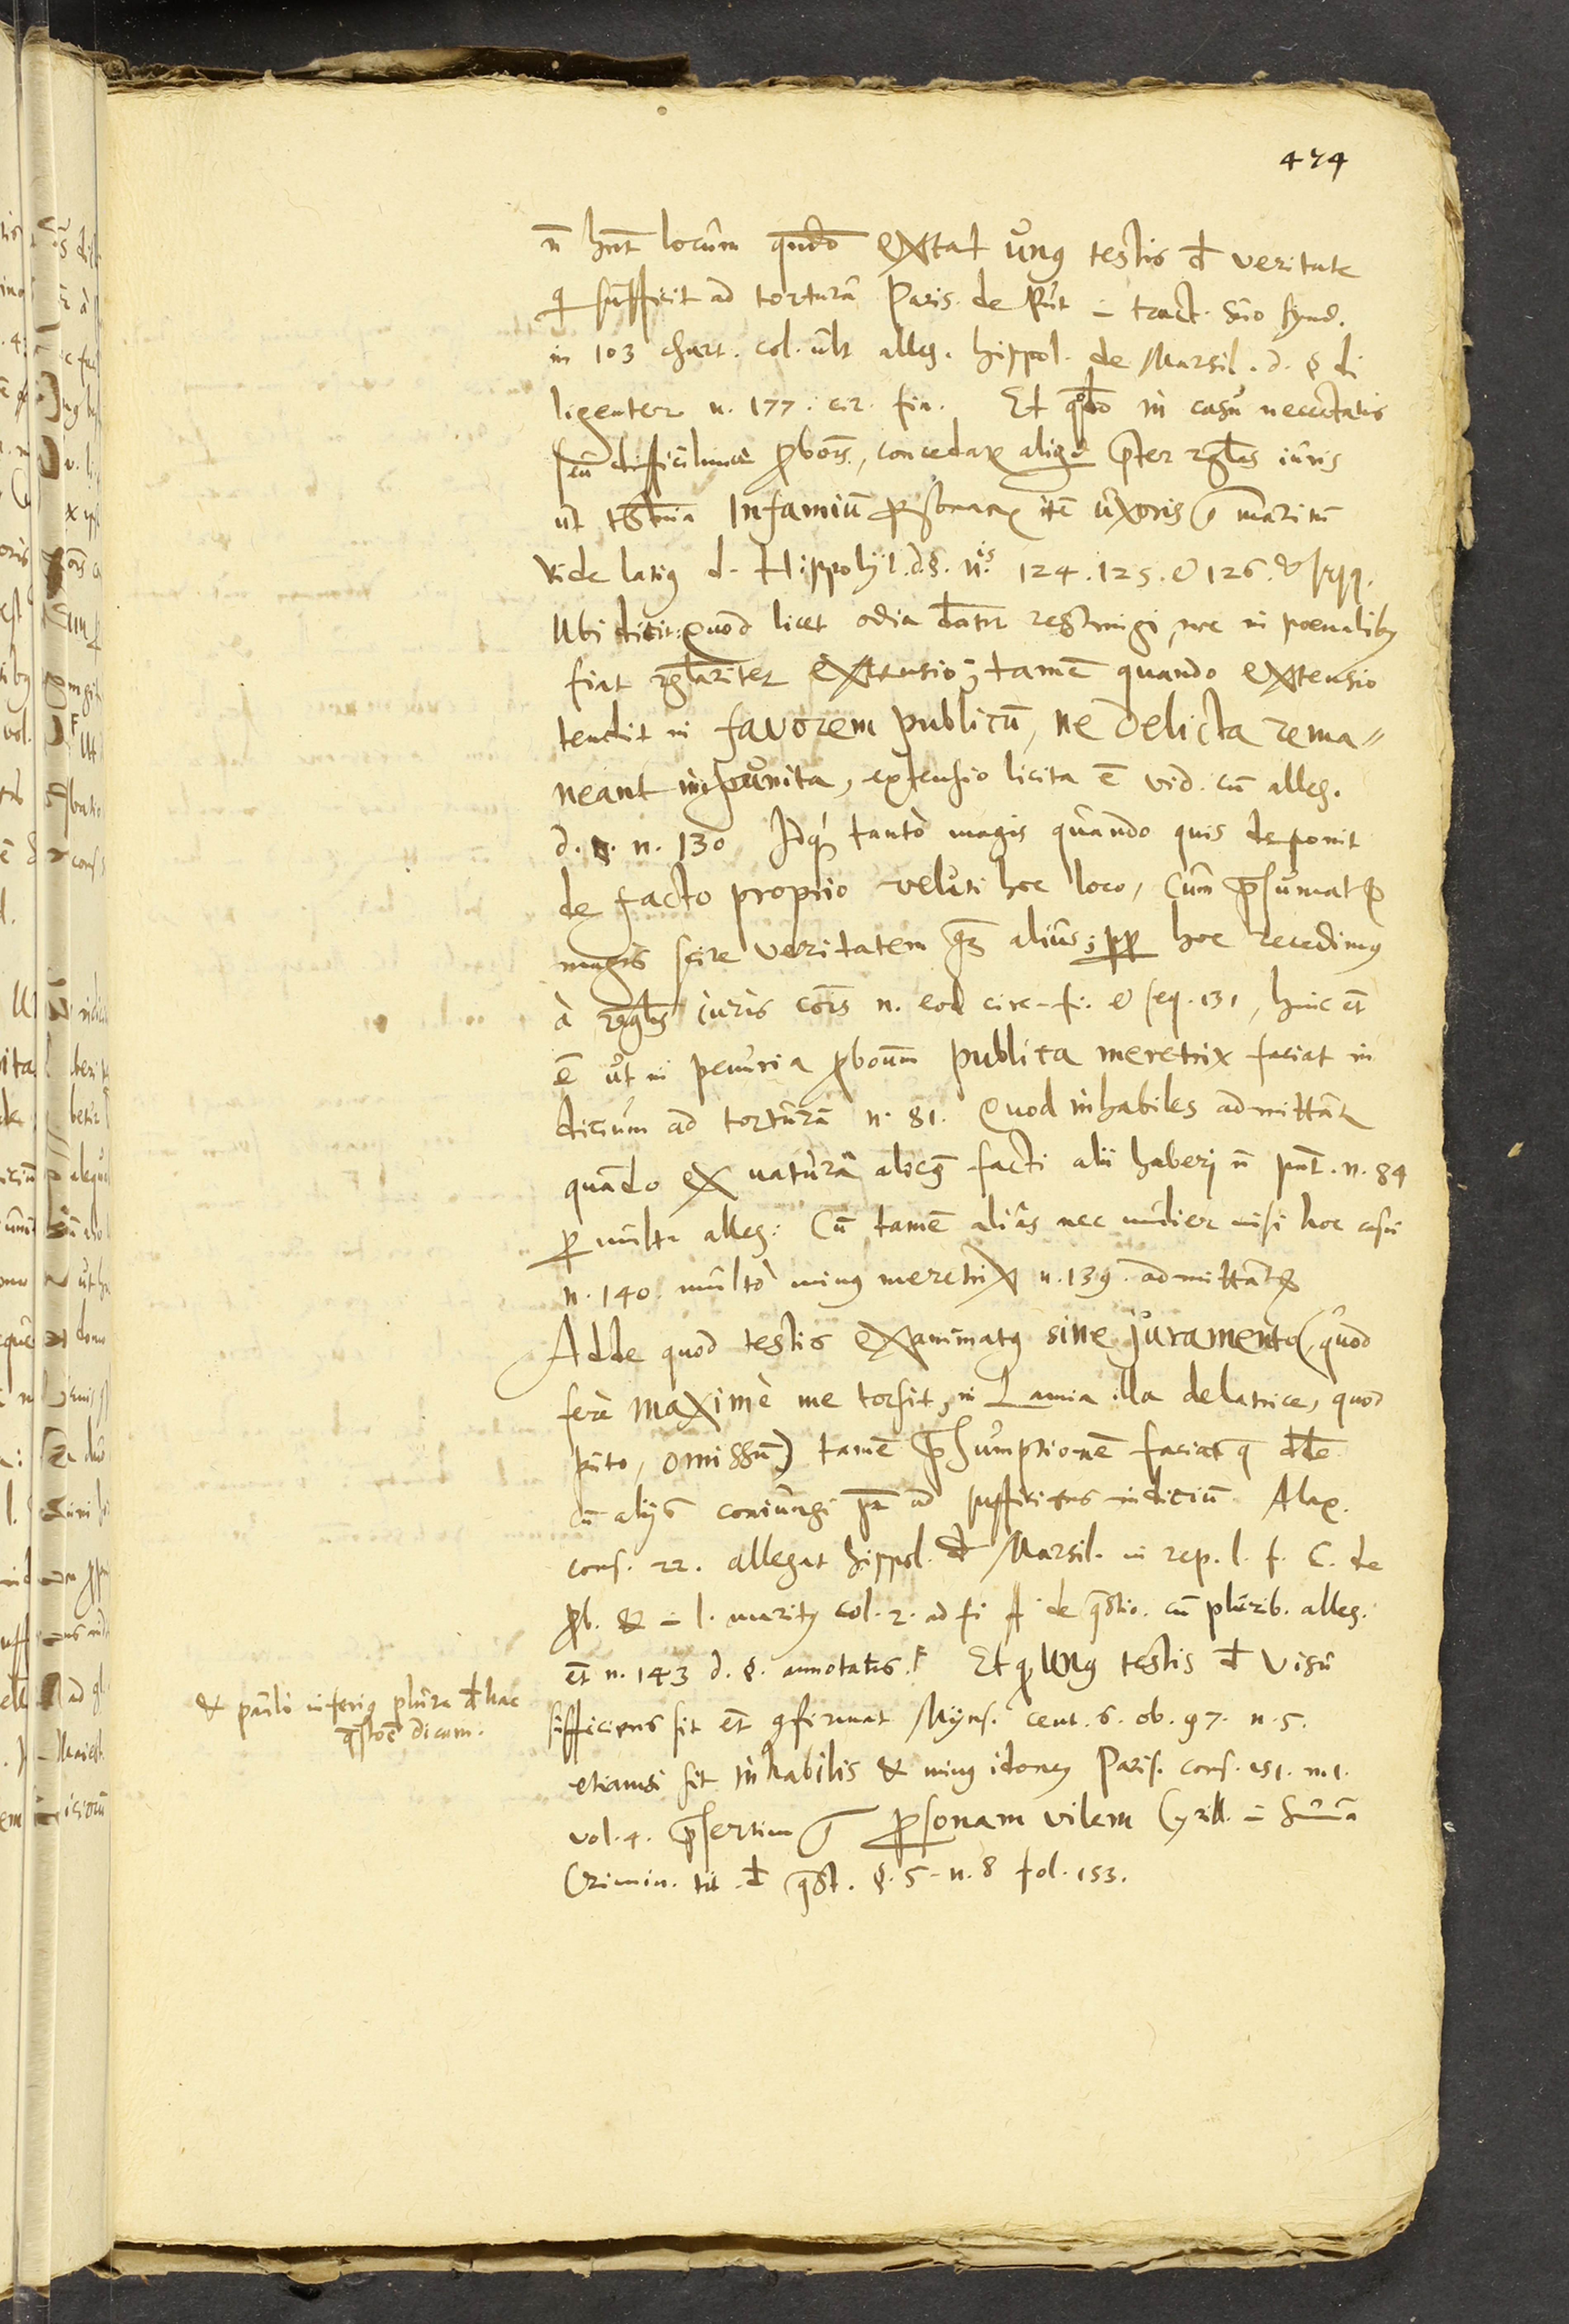 474
n̄ hn̄t locum qn̄do extat unus testis d̄ veritate
q sufficit ad torturā Paris. de Put. in tract. suo synd.
in 103 chart. col. ult alleg. hippol. de Marsil. d. § di
ligenter n. 177. cir. fin. Et in casu necc̄tatis
seu ꝓbōis, concedat̃ p̄ter rgl̄as iuris
ut Infamiū itē uxoris maritū
vide latius d. Hippolyt. d. §. n.is 124. 125. & 126. & seqq.
Ubi dicit: Quod licet odia restringi, nec in poenalibus
fiat rgl̄ariter extensio; tamē quando extensio
tendit in favorem publicū, ne delicta rema=
neant impunita, extensio licita ē vid. cū alleg.
d. §. n. 130 Idq́ tantò magis quando quis deponit
de facto proprio veluti hoc loco, cum p̄sumatur
magis scire veritatem qm̄ alius; pp hoc recedimus
à rgl̄is iuris cōis n. eod circ. fi. & seq. 131, hinc et̄
ē ut in penuria ꝓbonum publica meretrix faciat in
dicium ad torturā n. 81. Quod inhabiles admittāt̃
quando ex natura alicꝰ facti alii haberi n̄ pn̄t. n. 84
ꝑ multa alleg: Cū tamē alias nec mulier nisi hoc casu
n. 140. multò minus meretrix n. 139. admittatur
Adde quod testis examinatus sine juramento (quod
ferè maximè me torsit, in Lamia illa delatrice, quod
puto, omissū) tamē p̄sumptionē faciat q
cū alijs coniungi pt̄ ad sufficiens indicium Alex.
cons. 22. allegat hippol. d̄ Marsil. in rep. l. f. C. de
ꝓb. & in l. maritus col. 2. ad fi ff de q̄stio. cū plurib. alleg.
et̄ n. 143 d. §. annotatis. F Et q unus testis d̄ visu
sufficiens sit et̄ ꝯfirmat Myns. cent. 6. ob. 97. n. 5.
etiamsi sit inhabilis & minus idoneus Paris. cons. 151. n. 1.
vol. 4. p̄sertim ꝑsonam vilem Cyrill. in summa
Crimin. tit. d̄ q̄st. §. 5. n. 8 fol. 153.
& paulò inferius plura d̄ hac
q̄stōe dicam.